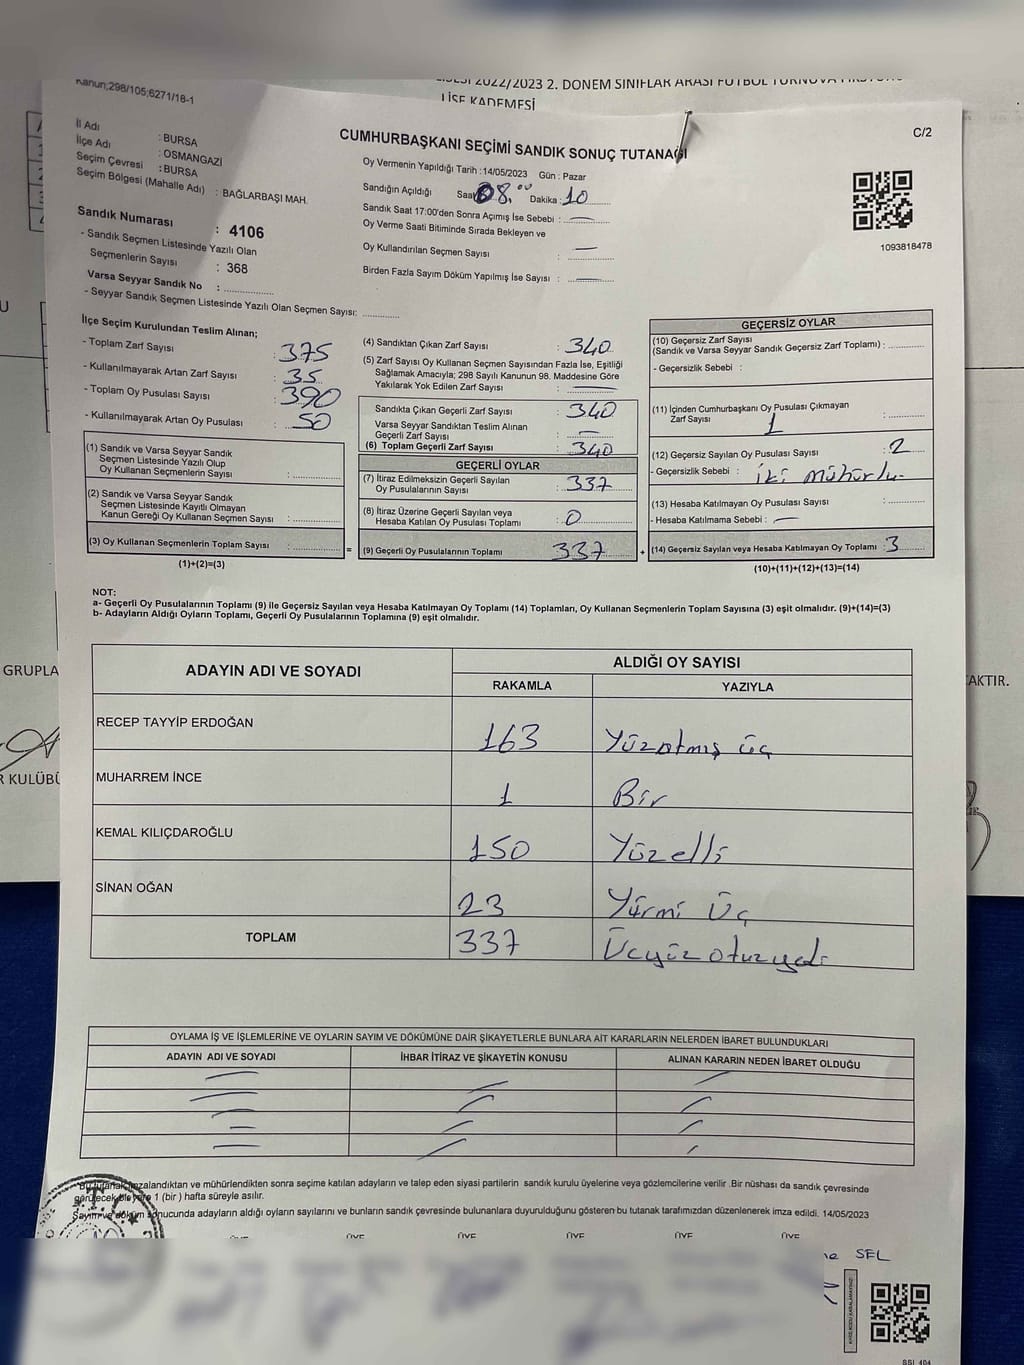 Kanun;298/105;6271/18-1
2022/2023 2. DÖNEM SINIFLAR ARASI FUTBOL TURNUVA
LİSE KADEMESİ
C/2
İl Adı : BURSA
İlçe Adı : OSMANGAZİ
Seçim Çevresi : BURSA
Seçim Bölgesi (Mahalle Adı) : BAĞLARBAŞI MAH.
CUMHURBAŞKANI SEÇİMİ SANDIK SONUÇ TUTANAĞI
Oy Vermenin Yapıldığı Tarih :14/05/2023 Gün : Pazar
Sandığın Açıldığı Saat 08.00 Dakika : 10
Sandık Saat 17:00'den Sonra Açımış İse Sebebi : —
Oy Verme Saati Bitiminde Sırada Bekleyen ve
Oy Kullandırılan Seçmen Sayısı : —
Birden Fazla Sayım Döküm Yapılmış İse Sayısı : —
1093818478
Sandık Numarası : 4106
- Sandık Seçmen Listesinde Yazılı Olan
Seçmenlerin Sayısı : 368
Varsa Seyyar Sandık No : ..............
- Seyyar Sandık Seçmen Listesinde Yazılı Olan Seçmen Sayısı: ............
İlçe Seçim Kurulundan Teslim Alınan;
- Toplam Zarf Sayısı : 375
- Kullanılmayarak Artan Zarf Sayısı : 35
- Toplam Oy Pusulası Sayısı : 390
- Kullanılmayarak Artan Oy Pusulası : 50
(1) Sandık ve Varsa Seyyar Sandık
Seçmen Listesinde Yazılı Olup
Oy Kullanan Seçmenlerin Sayısı : ..............
(2) Sandık ve Varsa Seyyar Sandık
Seçmen Listesinde Kayıtlı Olmayan
Kanun Gereği Oy Kullanan Seçmen Sayısı : ..............
(3) Oy Kullanan Seçmenlerin Toplam Sayısı : ..............
(1)+(2)=(3)
(4) Sandıktan Çıkan Zarf Sayısı : 340
(5) Zarf Sayısı Oy Kullanan Seçmen Sayısından Fazla İse, Eşitliği
Sağlamak Amacıyla; 298 Sayılı Kanunun 98. Maddesine Göre
Yakılarak Yok Edilen Zarf Sayısı : —
Sandıkta Çıkan Geçerli Zarf Sayısı : 340
Varsa Seyyar Sandıktan Teslim Alınan
Geçerli Zarf Sayısı : —
(6) Toplam Geçerli Zarf Sayısı : 340
GEÇERLİ OYLAR
(7) İtiraz Edilmeksizin Geçerli Sayılan
Oy Pusulalarının Sayısı : 337
(8) İtiraz Üzerine Geçerli Sayılan veya
Hesaba Katılan Oy Pusulası Toplamı : 0
= (9) Geçerli Oy Pusulalarının Toplamı 337 +
GEÇERSİZ OYLAR
(10) Geçersiz Zarf Sayısı
(Sandık ve Varsa Seyyar Sandık Geçersiz Zarf Toplamı) : ............
- Geçersizlik Sebebi :
(11) İçinden Cumhurbaşkanı Oy Pusulası Çıkmayan
Zarf Sayısı : 1
(12) Geçersiz Sayılan Oy Pusulası Sayısı : 2
- Geçersizlik Sebebi : İki mühürlü
(13) Hesaba Katılmayan Oy Pusulası Sayısı : ............
- Hesaba Katılmama Sebebi : —
(14) Geçersiz Sayılan veya Hesaba Katılmayan Oy Toplamı : 3
(10)+(11)+(12)+(13)=(14)
NOT:
a- Geçerli Oy Pusulalarının Toplamı (9) ile Geçersiz Sayılan veya Hesaba Katılmayan Oy Toplamı (14) Toplamları, Oy Kullanan Seçmenlerin Toplam Sayısına (3) eşit olmalıdır. (9)+(14)=(3)
b- Adayların Aldığı Oyların Toplamı, Geçerli Oy Pusulalarının Toplamına (9) eşit olmalıdır.
ADAYIN ADI VE SOYADI
ALDIĞI OY SAYISI
RAKAMLA YAZIYLA
RECEP TAYYİP ERDOĞAN 163 Yüzatmış üç
MUHARREM İNCE 1 Bir
KEMAL KILIÇDAROĞLU 150 Yüzelli
SİNAN OĞAN 23 Yirmi Üç
TOPLAM 337 Üçyüz otuzyedi
OYLAMA İŞ VE İŞLEMLERİNE VE OYLARIN SAYIM VE DÖKÜMÜNE DAİR ŞİKAYETLERLE BUNLARA AİT KARARLARIN NELERDEN İBARET BULUNDUKLARI
ADAYIN ADI VE SOYADI İHBAR İTİRAZ VE ŞİKAYETİN KONUSU ALINAN KARARIN NEDEN İBARET OLDUĞU
Bu tutanak imzalandıktan ve mühürlendikten sonra seçime katılan adayların ve talep eden siyasi partilerin sandık kurulu üyelerine veya gözlemcilerine verilir .Bir nüshası da sandık çevresinde
görülecek bir yere 1 (bir ) hafta süreyle asılır.
Sayım ve döküm sonucunda adayların aldığı oyların sayılarını ve bunların sandık çevresinde bulunanlara duyurulduğunu gösteren bu tutanak tarafımızdan düzenlenerek imza edildi. 14/05/2023
T.C.
ÜYE ÜYE ÜYE ÜYE ÜYE ÜYE
SEL
GRUPLA
AKTIR.
R KULÜBÜ
KARE KODU KARALAMAYINIZ!